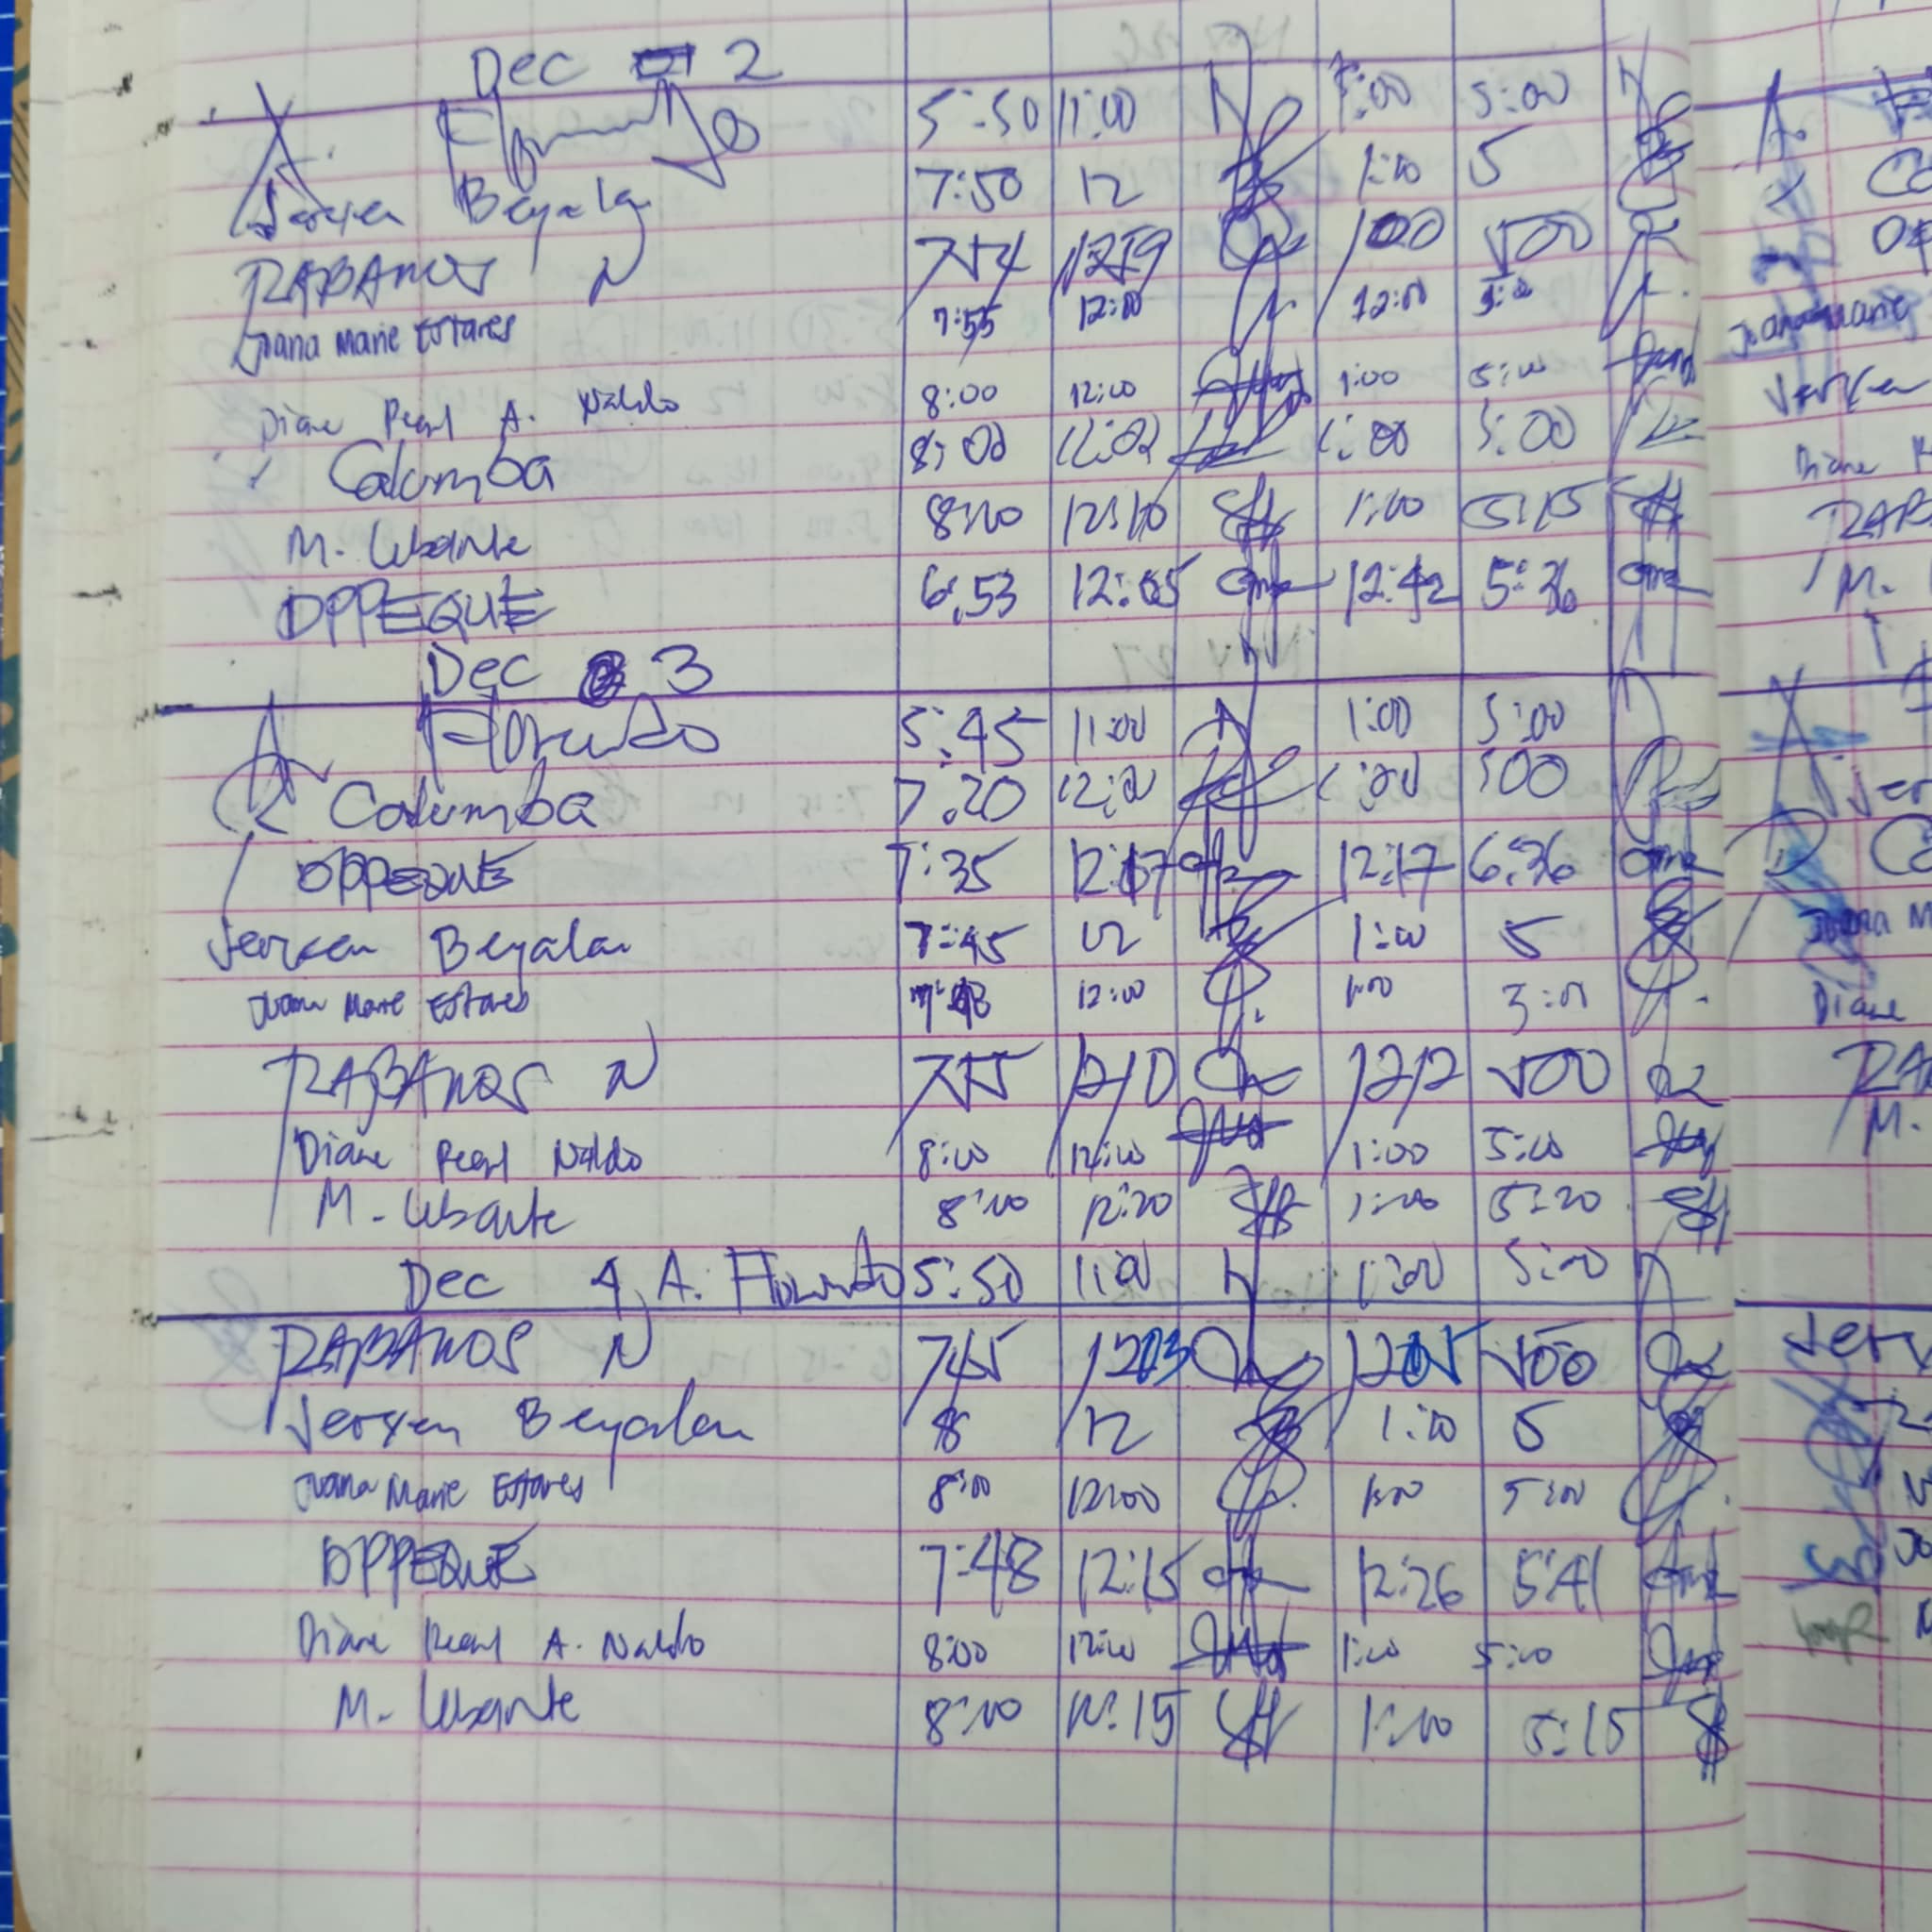 Dec 2
A. Florendo 5:50 11:00 1:00 5:00
Jersen Beyala 7:50 12 1:00 5
RABANOS N 754 1259 100 500
Joana Marie Estares 7:55 12:00 12:00 5:00
Diane Pearl A. Naldo 8:00 12:00 1:00 5:00
Calumba 8:00 12:02 1:00 5:00
M. Ubante 8:00 12:10 1:00 5:15
OPPEQUE 6:53 12:05 12:42 5:36
Dec 3
A. Florendo 5:45 11:00 1:00 5:00
Calumba 7:20 12:00 1:00 500
OPPEQUE 7:35 12:17 12:17 6:36
Jersen Beyalan 7:45 12 1:00 5
Joana Marie Estares 12:00 1:00
RABANOS N 755 1210 1212 500
Diane Pearl Naldo 8:00 12:00 1:00 5:00
M. Ubante 8:00 12:20 1:00 5:20
Dec 4 A. Florendo 5:50 11:00 1:00 5:00
RABANOS N 745 1203 1205 500
Jersen Beyalan 8 12 1:00 5
Joana Marie Estares 8:00 12:00 1:00 5:00
OPPEQUE 7:48 12:15 12:26 5:41
Diane Pearl A. Naldo 8:00 12:00 1:00 5:00
M. Ubante 8:00 12:15 1:00 5:15